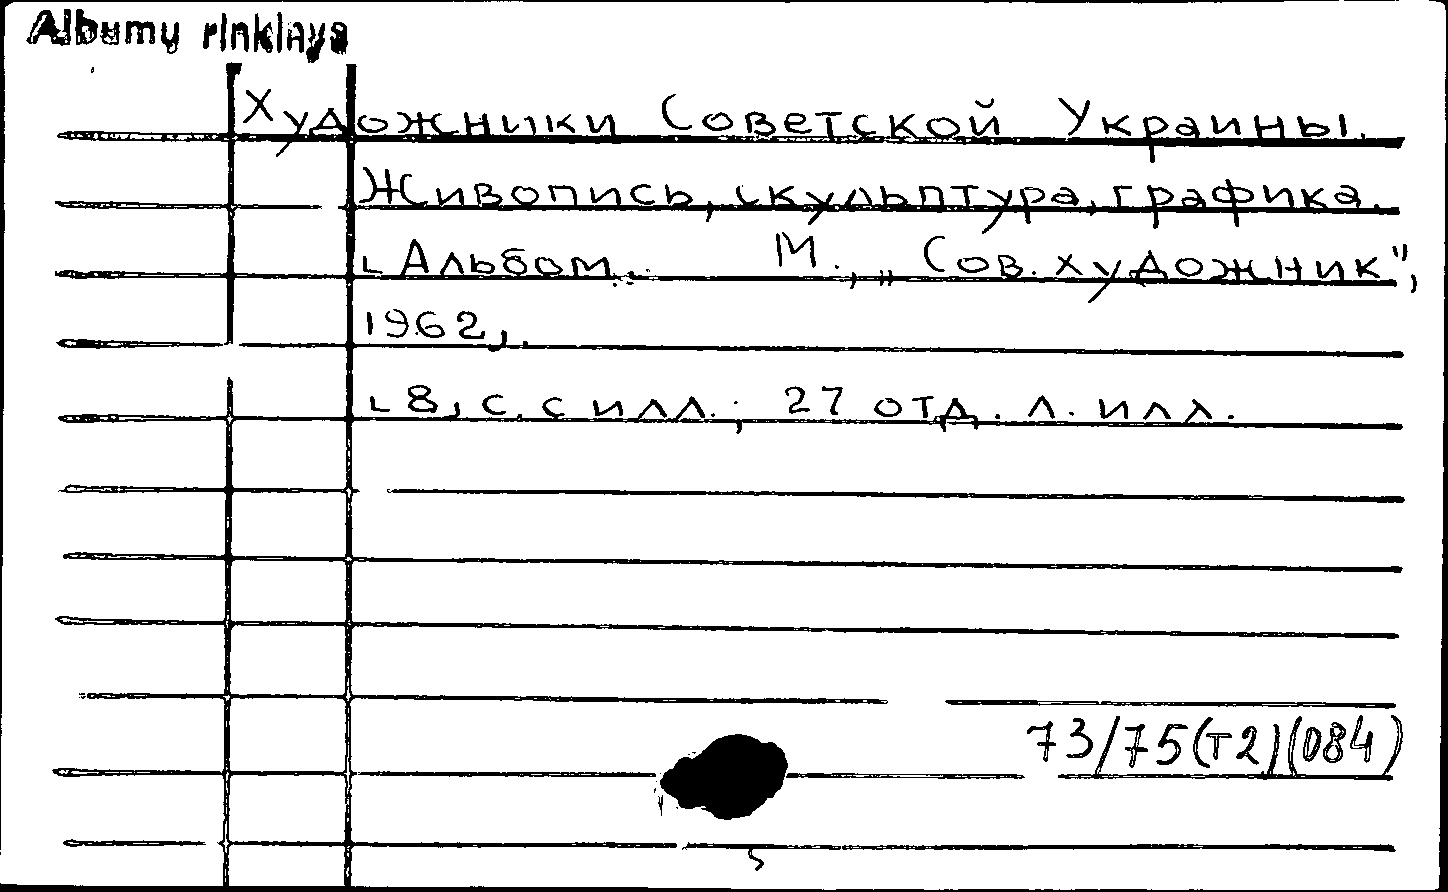 Albumų rinkinys
Художники Советской Украины.
Живопись, скульптура, графика.
[Альбом. М., „Сов. художник",
1962].
[8] с. с илл.; 27 отд. л. илл.
73/75(Т2)(084)